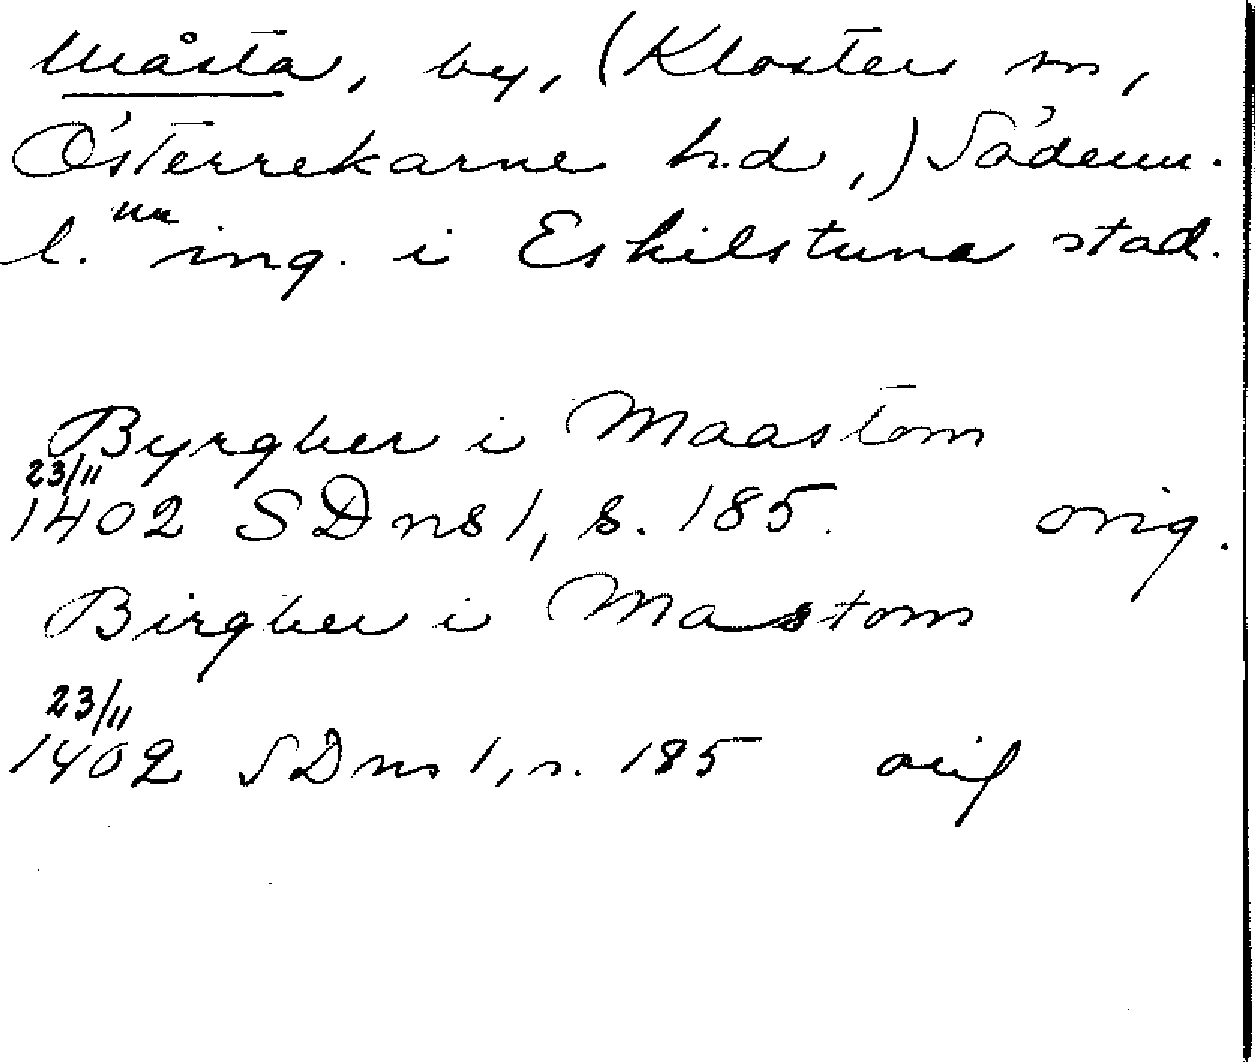 Måsta, by, (Klosters sn,
Österrekarne h.d,) Söderm.
l. nu ing. i Eskilstuna stad.
Byrgher i Maastom
23/11
1402 SDns 1, s. 185. orig.
Birgher i Mastom
23/11
1402 SDns 1, s. 185 orig